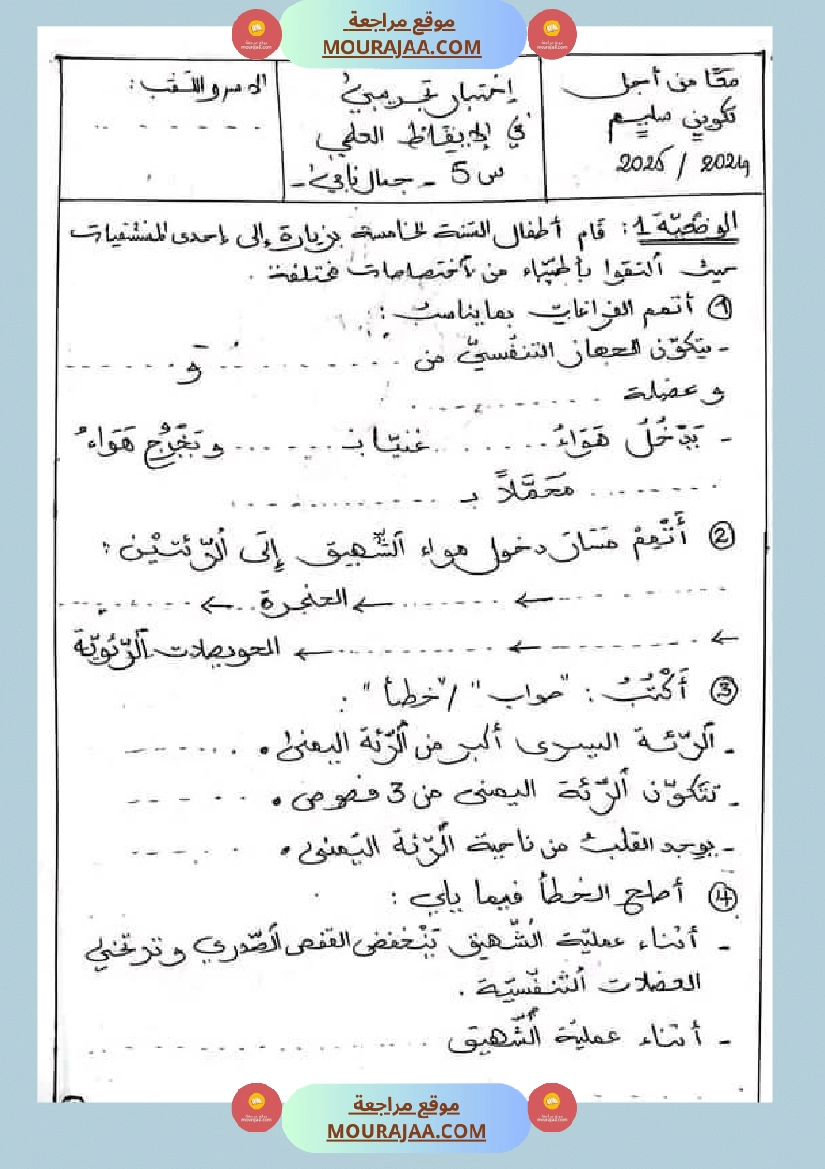 موقع مراجعة
MOURAJAA.COM
معًا من أجل
تكوين سليم
2024 / 2025
إختبار تجريبي
في الإيقاظ العلمي
س 5 - جمال نافي -
الاسم واللقب :
الوضعيّة 1 : قام أطفال السّنة الخامسة بزيارة إلى إحدى المستشفيات
حيث التقوا بأطبّاء من اختصاصات مختلفة .
① أتمم الفراغات بما يناسب :
- يتكوّن الجهاز التنفسيّ من .......... و ..........
و عضلة ..........
- يَدْخُلُ هَوَاءُ .......... غنيّا بـ .......... و يَخْرُجُ هَوَاءُ
.......... مُحَمَّلاً بـ ..........
② أُتَمِّمُ مَسَارَ دخول هواء الشّهيق إِلَى الرّئتيْن :
.......... ← .......... ← الحنجرة ← ..........
← .......... ← .......... ← الحويصلات الرّئويّة
③ أَكْتُبُ : "صواب" / "خطأ" :
- الرّئة اليسرى أكبر من الرّئة اليمنى . ..........
- تتكوّن الرّئة اليمنى من 3 فصوص . ..........
- يوجد القلب من ناحية الرّئة اليمنى . ..........
④ أصلح الخطأ فيما يلي :
- أثناء عمليّة الشّهيق يَنْخفض القفص الصّدري و ترتخي
العضلات التّنفّسيّة .
- أثناء عمليّة الشّهيق ..........
موقع مراجعة
MOURAJAA.COM